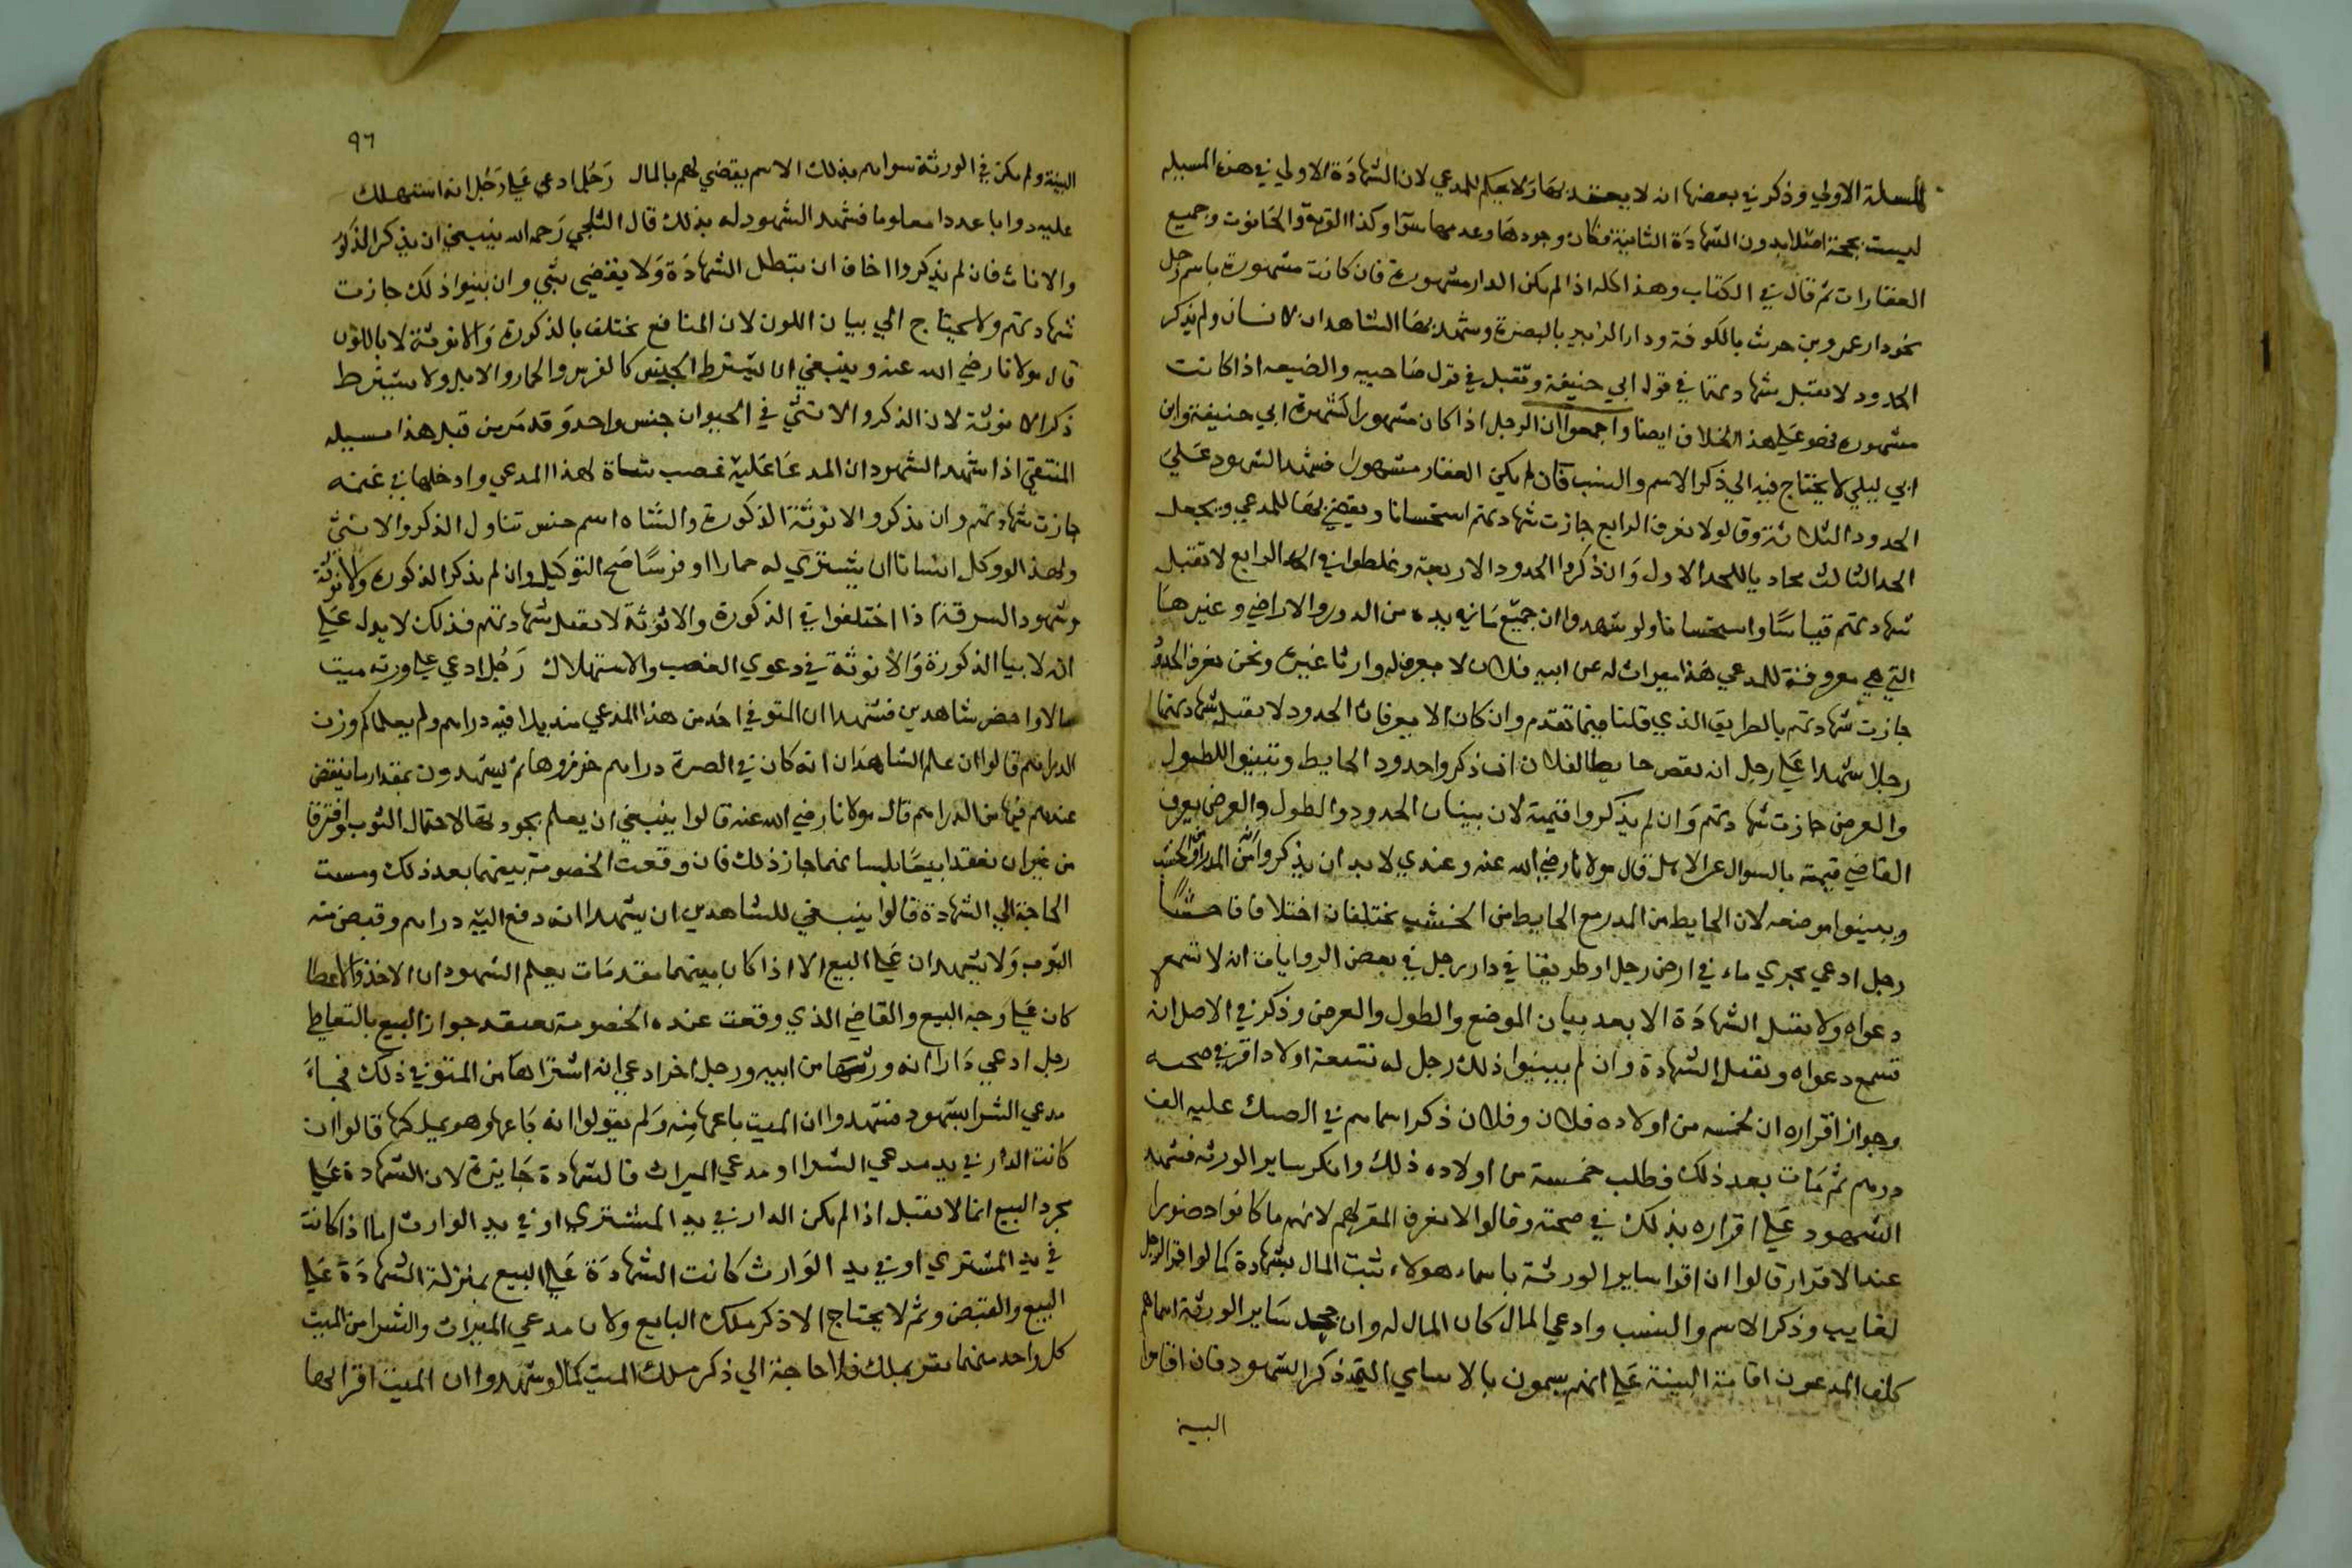 المسلة الاولي وذكر في بعضها ان لا يحكم للمدعي لان الشهادة الاولي في هذه المسيله
ليست بحجة اصلا بدون الشهادة الثانية فكان وجودها وعدمها سوا وكذا القرية والحانوت وجميع
العقارات ثم قال في الكتاب وهذا كله اذا لم يكن الدار مشهورة فان كانت مشهورة باسم رجل
نحو دار عمرو بن حريث بالكوفة ودار الزبير بالبصرة وشهد بها الشاهدان لانسان ولم يذكر
الحدود لا تقبل شهادتهما في قول ابي حنيفة وتقبل في قول صاحبيه والضيعه اذا كانت
مشهوره فهو علي هذا الخلاف ايضا واجمعوا ان الرجل اذا كان مشهورا كشهرة ابي حنيفة وابن
ابي ليلي لا يحتاج فيه الي ذكر الاسم والنسب فان لم يكن العقار مشهورا فشهد الشهود علي
الحدود الثلاثة وقالوا لا نعرف الرابع جازت شهادتهم استحسانا ويقضي بها للمدعي ويجعل
الحد الثالث محاذيا للحد الاول وان ذكروا الحدود الاربعة وغلطوا في الحد الرابع لا تقبل
شهادتهم قياسا واستحسانا ولو شهدوا ان جميع ما في يده من الدور والاراضي وغيرها
التي هي معروفة للمدعي هذا ميراث له عن ابيه فلان لا نعرف له وارثا غيره ونحن نعرف الحدود
جازت شهادتهم بالطريق الذي قلنا فيما تقدم وان كانا لا يعرفان الحدود لا تقبل شهادتهما
رجلان شهدا علي رجل انه نقض حايطا لفلان ان ذكروا حدود الحايط وبينوا الطول
والعرض جازت شهادتهم وان لم يذكروا قيمته لان ببيان الحدود والطول والعرض يعرف
القاضي قيمته بالسوال عن الاهل قال مولانا رضي الله عنه وعندي لا بد ان يذكروا انه من المدر او من الخشب
ويبينوا موضعه لان الحايط من المدر مع الحايط من الخشب يختلفان اختلافا فاحشا
رجل ادعي مجري ماء في ارض رجل او طريقا في دار رجل في بعض الروايات انه لا تسمع
دعواه ولا تقبل الشهادة الا بعد بيان الموضع والطول والعرض وذكر في الاصل انه
تسمع دعواه وتقبل الشهادة وان لم يبينوا ذلك رجل له تسعة اولاد اقر في صحته
وجواز اقراره ان لخمسه من اولاده فلان وفلان ذكر اسماهم في الصك عليه الف
درهم ثم مات بعد ذلك فطلب خمسة من اولاده ذلك وانكر ساير الورثه فشهد
الشهود علي اقراره بذلك في صحته وقالوا لا نعرف المقر لهم لانهم ما كانوا حضورا
عند الاقرار قالوا ان اقر ساير الورثة باسماء هولاء ثبت المال بشهادة كما لو اقر الرجل
لغايب وذكر الاسم والنسب وادعي المال كان المال له وان جحد ساير الورثة اسماهم
كلف المدعون اقامة البينة علي انهم يسمون بالاسامي التي ذكر الشهود فان اقاموا
البينة
٩٦
البينة ولم يكن في الورثة سواهم بذلك الاسم يقضي لهم بالمال رجل ادعي علي رجل انه استهلك
عليه دوابا عددا معلوما فشهد الشهود له بذلك قال الثلجي رحمه الله ينبغي ان يذكر الذكور
والاناث فان لم يذكروا اخاف ان تبطل الشهادة ولا يقضي بشي وان بينوا ذلك جازت
شهادتهم ولا يحتاج الي بيان اللون لان المنافع تختلف بالذكورة والانوثة لا باللون
قال مولانا رضي الله عنه وينبغي ان يشترط الجنس كالفرس والحمار والابل ولا يشترط
ذكر الانوثة لان الذكر والانثي في الحيوان جنس واحد وقد مر من قبل هذا مسيله
المنتقي اذا شهد الشهود ان المدعا عليه غصب شاة لهذا المدعي وادخلها في غنمه
جازت شهادتهم وان لم يذكروا الانوثة الذكورة والشاة اسم جنس تناول الذكر والانثي
ولهذا لو وكل انسانا ان يشتري له حمارا او فرسا صح التوكيل وان لم يذكر الذكورة والانوثة
وشهود السرقة اذا اختلفوا في الذكورة والانوثة لا تقبل شهادتهم فذلك لا يدل علي
انه لا بيان الذكورة والانوثة في دعوي الغصب والاستهلاك رجل ادعي علي ورثة ميت
مالا واحضر شاهدين فشهدا ان المتوفي اخذ من هذا المدعي منديلا فيه دراهم ولم يعلما كم وزن
الدراهم قالوا ان علم الشاهدان انه كان في الصرة دراهم حزروها ثم يشهدون بمقدار ما يتيقن
عندهم فيها من الدراهم قال مولانا رضي الله عنه قالوا ينبغي ان يعلم بجودتها لاحتمال الثوب وافترقا
من غير ان يعقدا بيعا بلسانهما جاز ذلك فان وقعت الخصومة بينهما بعد ذلك ومست
الحاجة الي الشهادة قالوا ينبغي للشاهدين ان يشهدا انه دفع اليه دراهم وقبض منه
الثوب ولا يشهدان علي البيع الا اذا كان بينهما مقدمات يعلم الشهود ان الاخذ والاعطا
كان علي وجه البيع والقاضي الذي وقعت عنده الخصومة يعتقد جواز البيع بالتعاطي
رجل ادعي دارا انه ورثها من ابيه ورجل اخر ادعي انه اشتراها من المتوفي ذلك فجاء
مدعي الشرا بشهود فشهدوا ان الميت باعها منه ولم يقولوا انه باعها وهو يملكها قالوا ان
كانت الدار في يد مدعي الشرا او مدعي الميراث فالشهادة جايزة لان الشهادة علي
مجرد البيع انما لا تقبل اذا لم يكن الدار في يد المشتري او في يد الوارث اما اذا كانت
في يد المشتري او في يد الوارث كانت الشهادة علي البيع بمنزلة الشهادة علي
البيع والقبض وثم لا يحتاج الا ذكر ملك البايع ولان مدعي الميراث والشرا من الميت
كل واحد منهما يقر بملك فلا حاجة الي ذكر ملك الميت كما لو شهدوا ان الميت اقر لها